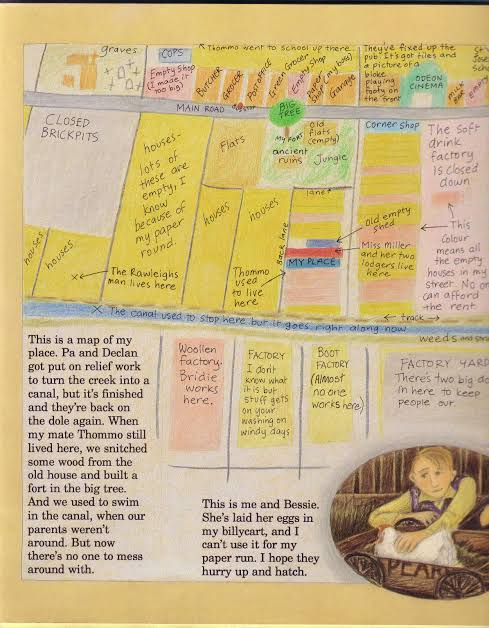 graves
COPS
↖ Thommo went to school up there
They've fixed up the
pub. It's got tiles and
a picture of a
bloke
playing
footy on
the front
Empty Shop
(I made it
too big)
BUTCHER
GROCER
POST OFFICE
Green Grocer
Empty Shop
Paper Shop (my boss)
Garage
ODEON
CINEMA
MILK BAR
EMPTY
MAIN ROAD
BIG
TREE
CLOSED
BRICKPITS
houses-
lots of
these are
empty, I
know
because of
my paper
round.
Flats
MY FORT
Old
flats
(empty)
ancient
ruins
Jungle
Corner Shop
The Soft
drink
factory
is closed
down
lane
houses
houses
houses
houses
Back lane
Old empty
shed
MY PLACE
Miss Miller
and her two
lodgers live
here
This
colour
means all
the empty
houses in my
street. No one
can afford
the rent.
X ← The Rawleighs
man lives here
Thommo
used to
live
here
X The canal used to stop here but it goes right along now
← track →
weeds and
This is a map of my
place. Pa and Declan
got put on relief work
to turn the creek into a
canal, but it's finished
and they're back on
the dole again. When
my mate Thommo still
lived here, we snitched
some wood from the
old house and built a
fort in the big tree.
And we used to swim
in the canal, when our
parents weren't
around. But now
there's no one to mess
around with.
Woollen
factory.
Bridie
works
here.
FACTORY
I don't
know what
it is but
stuff gets
on your
washing on
windy days
BOOT
FACTORY
(Almost
no one
works here)
FACTORY YARD
There's two big do
in here to keep
people out.
This is me and Bessie.
She's laid her eggs in
my billycart, and I
can't use it for my
paper run. I hope they
hurry up and hatch.
PEAR